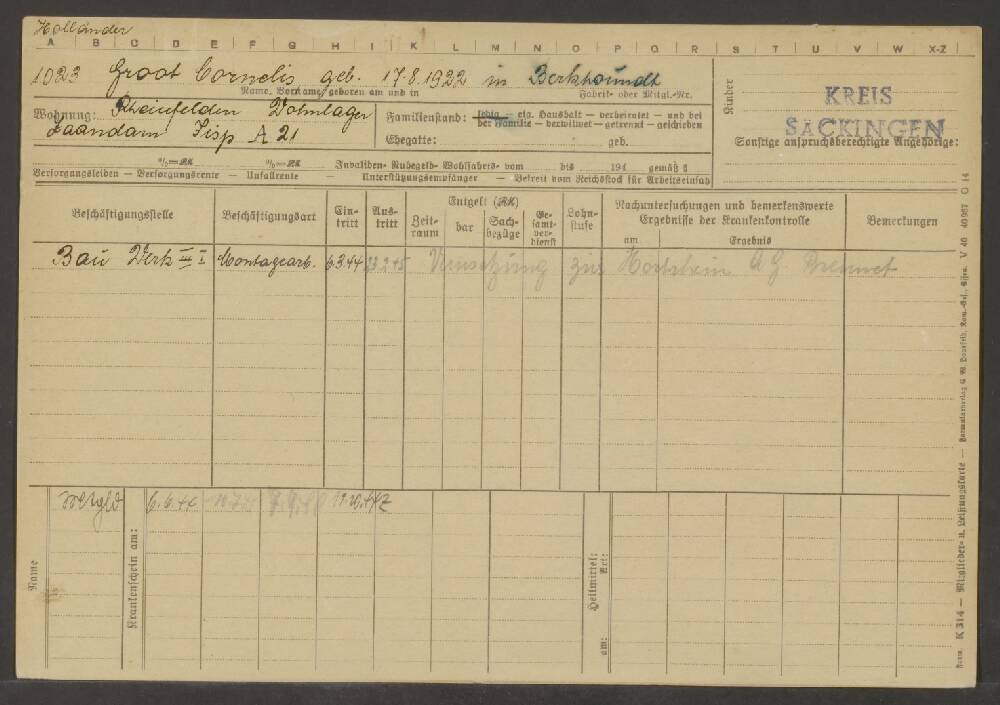 Holländer
A B C D E F G H I K L M N O P Q R S T U V W X-Z
1023 Groot Cornelis geb. 17.8.1922 in Berkhoundt
Name, Vorname, geboren am und in Fabrik- oder Mitgl.-Nr.
Kinder
KREIS
SÄCKINGEN
Wohnung: Rheinfelden Wohnlager
Zaandam Jisp A 21
Familienstand: ledig — eig. Haushalt — verheiratet — und bei
der Familie — verwitwet — getrennt — geschieden
Ehegatte: geb.
Sonstige anspruchsberechtigte Angehörige:
%=RM %=RM Invaliden- Ruhegeld- Wohlfahrts- vom bis 194 gemäß §
Versorgungsleiden — Versorgungsrente — Unfallrente — Unterstützungsempfänger — Befreit vom Reichsstock für Arbeitseinsatz
Beschäftigungsstelle Beschäftigungsart Ein-tritt Aus-tritt Entgelt (RM) Zeit-raum bar Sach-bezüge Ge-samt-ver-dienst Lohn-stufe Nachuntersuchungen und bemerkenswerte Ergebnisse der Krankenkontrolle am Ergebnis Bemerkungen
Bau Werk III I Montagearb. 6.3.44 23.2.45 Versetzung zur A.G. Brennet
Name
Krankenschein am: 6.6.44
Heilmittel:
am: Art:
Form. K 314 — Mitglieder- u. Leistungskarte — V 40 40967 C 14